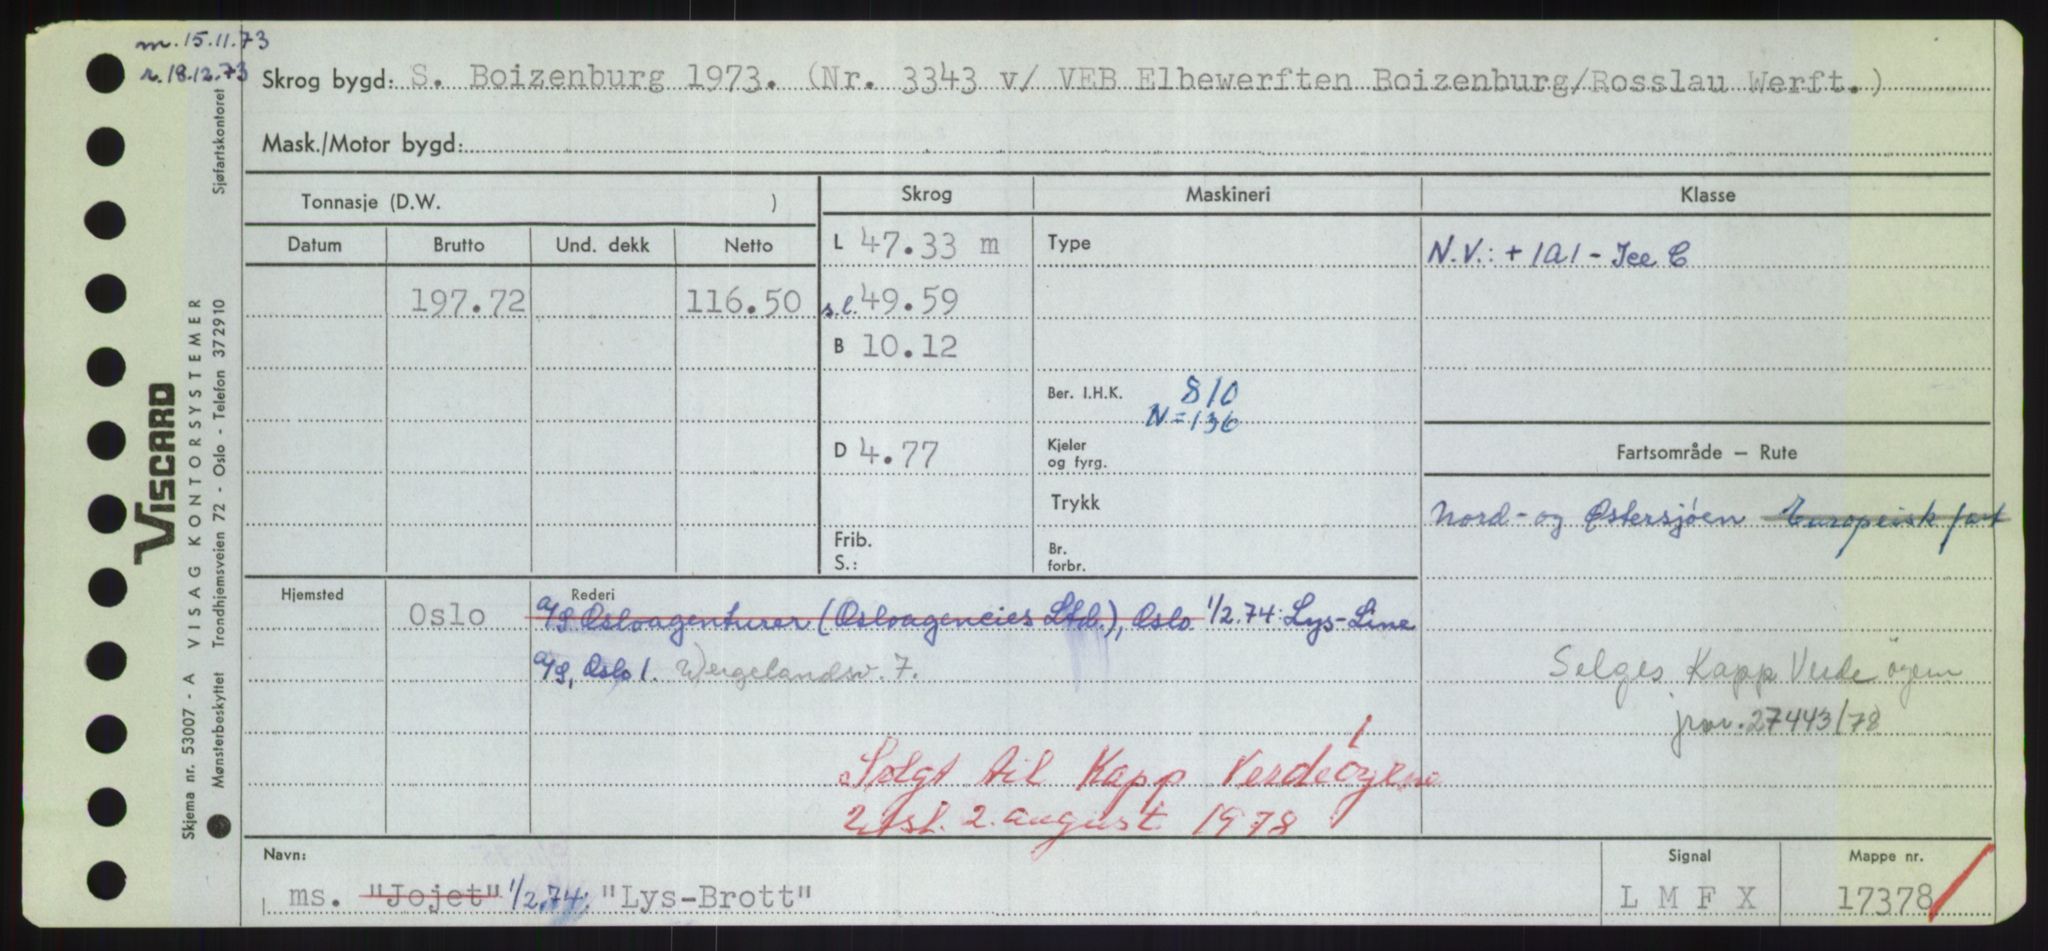 m. 15.11.73
r. 18.12.73
Skrog bygd: S. Boizenburg 1973. (Nr. 3343 v/ VEB Elbewerften Boizenburg/Rosslau Werft.)
Mask./Motor bygd:
Tonnasje (D.W. )
Skrog
Maskineri
Klasse
Datum Brutto Und. dekk Netto
L 47.33 m
Type
N.V.: + 1A1 - Ice C
197.72 116.50
s.l. 49.59
B 10.12
Ber. I.H.K. 810
N = 136
D 4.77
Kjeler
og fyrg.
Fartsområde – Rute
Trykk
Nord- og Østersjøen Europeisk fart
Frib.
S.:
Br.
forbr.
Hjemsted
Rederi
Oslo A/S Osloagenturer (Osloagencies Ltd.), Oslo. 1/2.74: Lys-Line
A/S, Oslo 1. Wergelandsv. 7.
Selges Kapp Verde øyene
jnr. 27443/78
Solgt til Kapp Verdeøyene
2. august 1978
Navn:
Signal
Mappe nr.
ms. "Jojet" 1/2.74: "Lys-Brott"
L M F X
17378
VISCARD
VISAG KONTORSYSTEMER
Skjema nr. 53007 - A
Mønsterbeskyttet Trondhjemsveien 72 - Oslo - Telefon 372910 Sjøfartskontoret